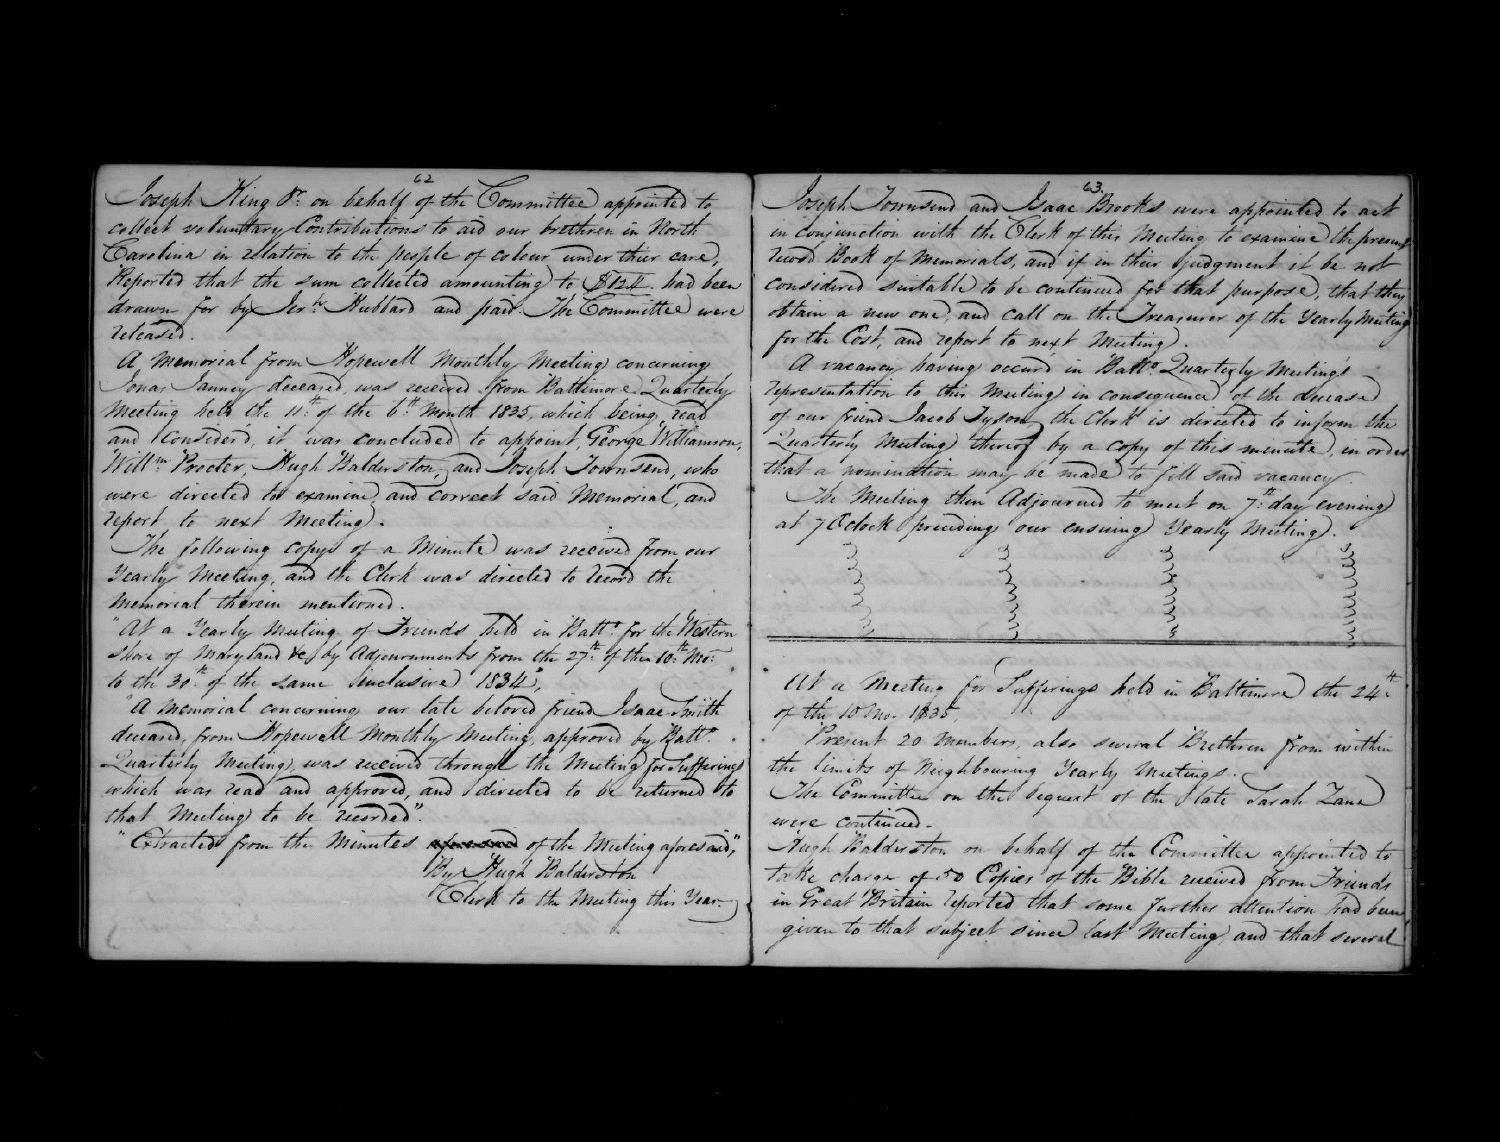 62
Joseph King Jr. on behalf of the Committee appointed to
collect voluntary Contributions to aid our brethren in North
Carolina in relation to the people of colour under their care,
Reported that the sum collected amounting to $124. had been
drawn for by Jerh. Hubbard and paid. The Committee were
released.
A Memorial from Hopewell Monthly Meeting concerning
Jonas Janney deceased, was received from Baltimore Quarterly
Meeting held the 11th of the 6th Month 1835, which being read
and Consider'd, it was concluded to appoint, George Williamson,
Willm. Procter, Hugh Balderston, and Joseph Townsend, who
were directed to examine and correct said Memorial, and
report to next Meeting.
The following copy of a Minute was received from our
Yearly Meeting, and the Clerk was directed to record the
Memorial therein mentioned.
"At a Yearly Meeting of Friends held in Balto. for the Western
Shore of Maryland &c, by Adjournments from the 27th of the 10th Mo:
to the 30th of the same inclusive 1834",
"A Memorial concerning our late beloved friend Isaac Smith
deceased, from Hopewell Monthly Meeting, approved by Balto.
Quarterly Meeting, was received through the Meeting for Sufferings
which was read and approved, and directed to be returned to
that Meeting to be recorded."
"Extracted from the Minutes of the Meeting aforesaid,"
By Hugh Balderston
Clerk to the Meeting this Year.
63.
Joseph Townsend and Isaac Brooks were appointed to act
in conjunction with the Clerk of this Meeting to examine the present
record Book of Memorials, and if in their judgment it be not
considered suitable to be continued for that purpose, that they
obtain a new one, and call on the Treasurer of the Yearly Meeting
for the Cost, and report to next Meeting.
A vacancy having occurd in Balto. Quarterly Meeting's
representation to this Meeting in consequence of the decease
of our friend Jacob Tyson, the Clerk is directed to inform the
Quarterly Meeting thereof by a copy of this minute, in order
that a nomination may be made to fill said vacancy.
The Meeting then Adjourned to meet on 7th day evening
at 7 OClock preceding our ensuing Yearly Meeting.
At a Meeting for Sufferings held in Baltimore the 24th
of the 10 Mo. 1835.
Present 20 members, also several Brethren from within
the limits of Neighbouring Yearly Meetings.
The Committee on the bequest of the late Sarah Zane
were continued.
Hugh Balderston on behalf of the Committee appointed to
take charge of 50 Copies of the Bible received from Friends
in Great Britain reported that some further attention had been
given to that subject since last Meeting, and that several